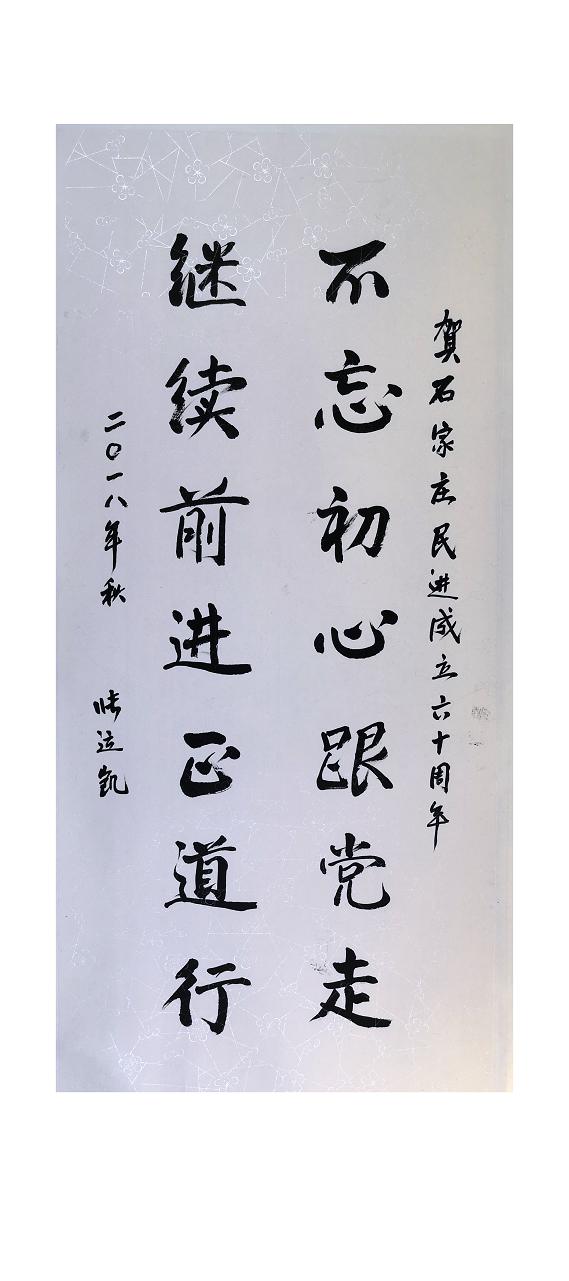 贺石家庄民进成立六十周年
不忘初心跟党走
继续前进正道行
二〇一八年秋
张运凯